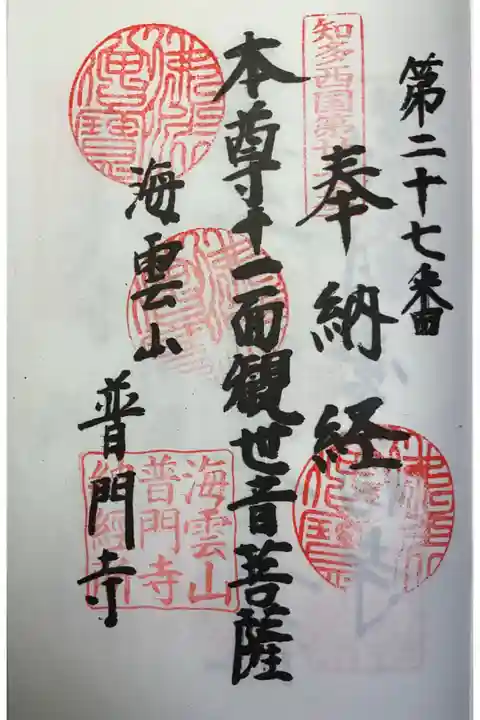 第二十七番
奉納経
本尊十一面観世音菩薩
海雲山
普門寺
知多西国第
海雲山
普門寺
納経印